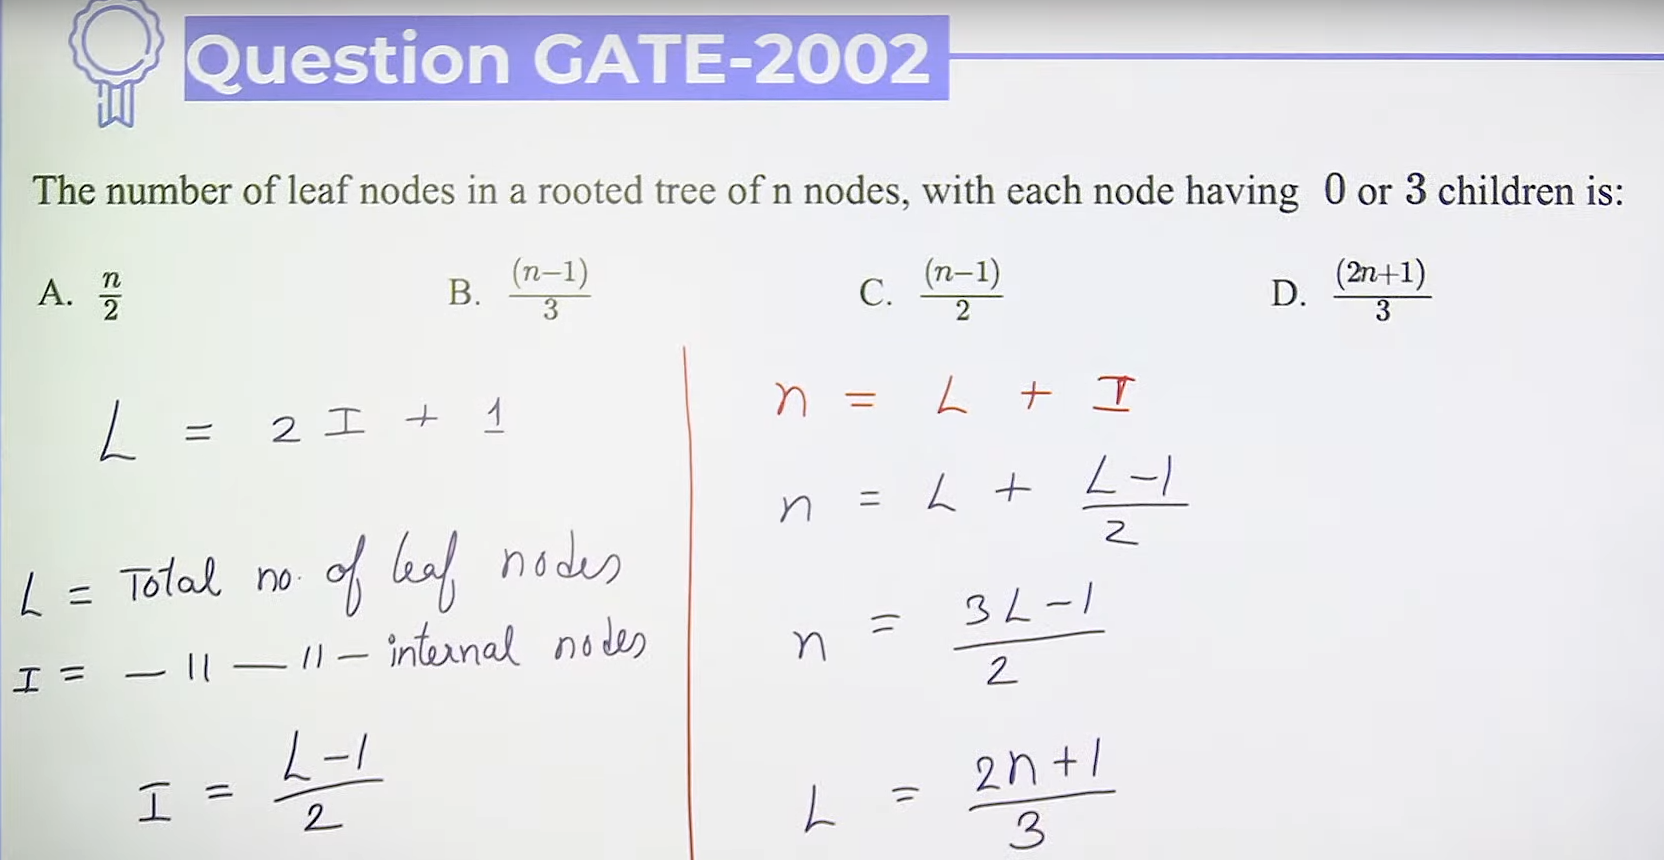 Question GATE-2002
The number of leaf nodes in a rooted tree of n nodes, with each node having 0 or 3 children is:
A. n/2 B. (n−1)/3 C. (n−1)/2 D. (2n+1)/3
L = 2 I + 1
L = Total no. of leaf nodes
I = — 11 — 11 — internal nodes
I = L-1/2
n = L + I
n = L + L-1/2
n = 3L-1/2
L = 2n+1/3